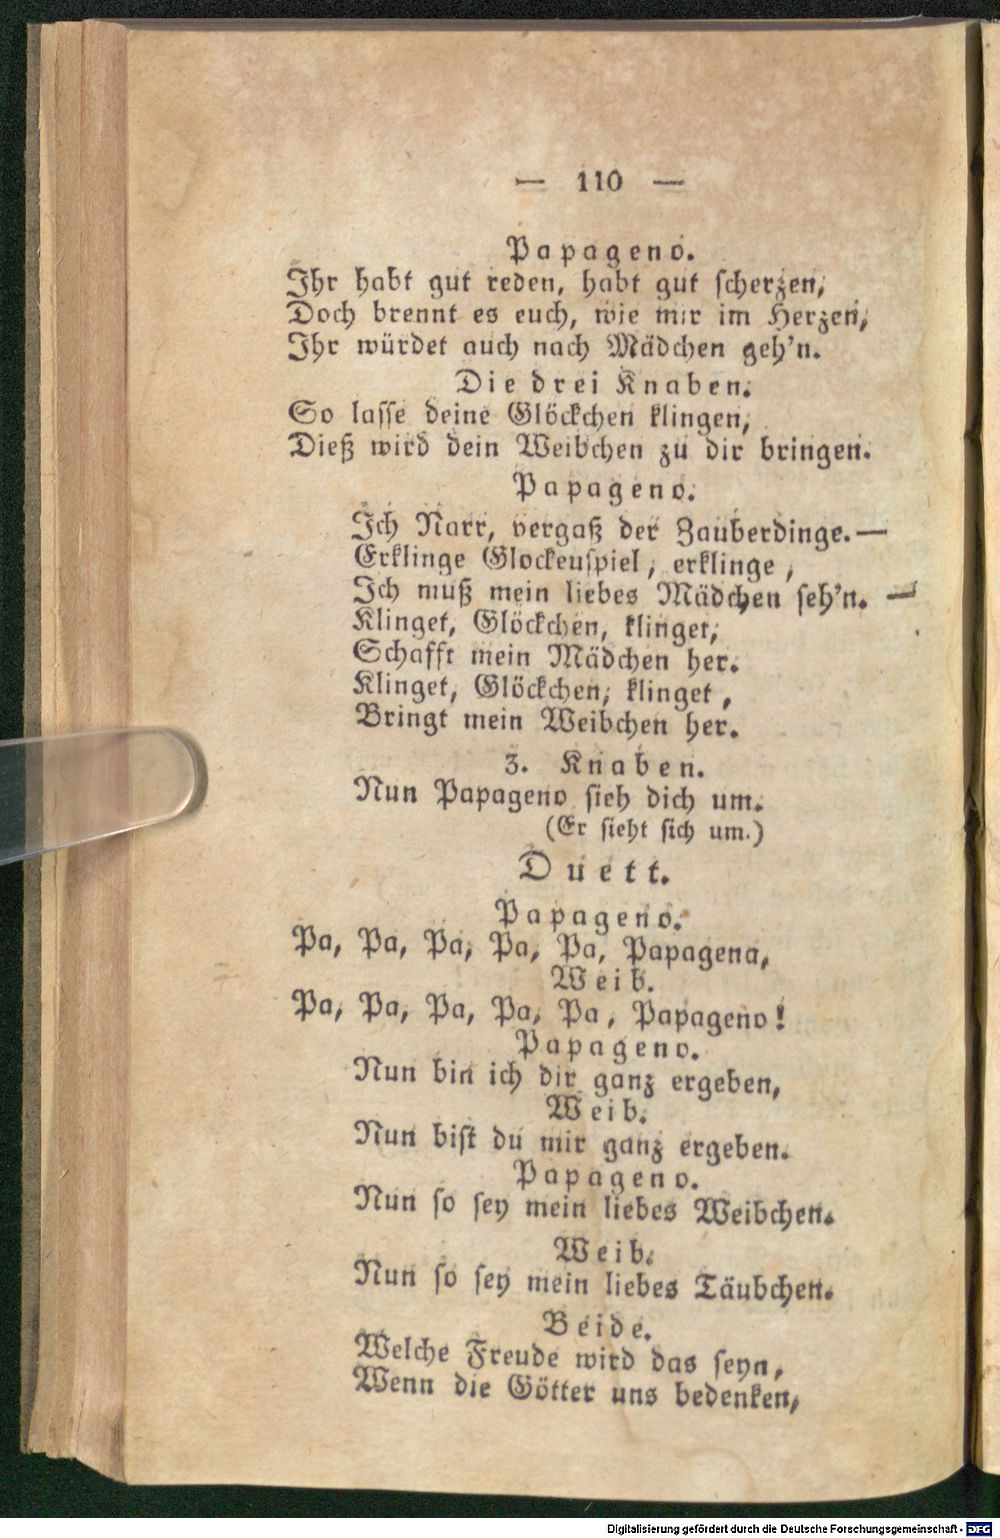 — 110 —
Papageno.
Ihr habt gut reden, habt gut scherzen,
Doch brennt es euch, wie mir im Herzen,
Ihr würdet auch nach Mädchen geh'n.
Die drei Knaben.
So lasse deine Glöckchen klingen,
Dieß wird dein Weibchen zu dir bringen.
Papageno.
Ich Narr, vergaß der Zauberdinge.—
Erklinge Glockenspiel, erklinge,
Ich muß mein liebes Mädchen seh'n. —
Klinget, Glöckchen, klinget,
Schafft mein Mädchen her.
Klinget, Glöckchen, klinget,
Bringt mein Weibchen her.
3. Knaben.
Nun Papageno sieh dich um.
(Er sieht sich um.)
Duett.
Papageno.
Pa, Pa, Pa, Pa, Pa, Papagena,
Weib.
Pa, Pa, Pa, Pa, Pa, Papageno!
Papageno.
Nun bin ich dir ganz ergeben,
Weib.
Nun bist du mir ganz ergeben.
Papageno.
Nun so sey mein liebes Weibchen.
Weib.
Nun so sey mein liebes Täubchen.
Beide.
Welche Freude wird das seyn,
Wenn die Götter uns bedenken,
Digitalisierung gefördert durch die Deutsche Forschungsgemeinschaft - DFG